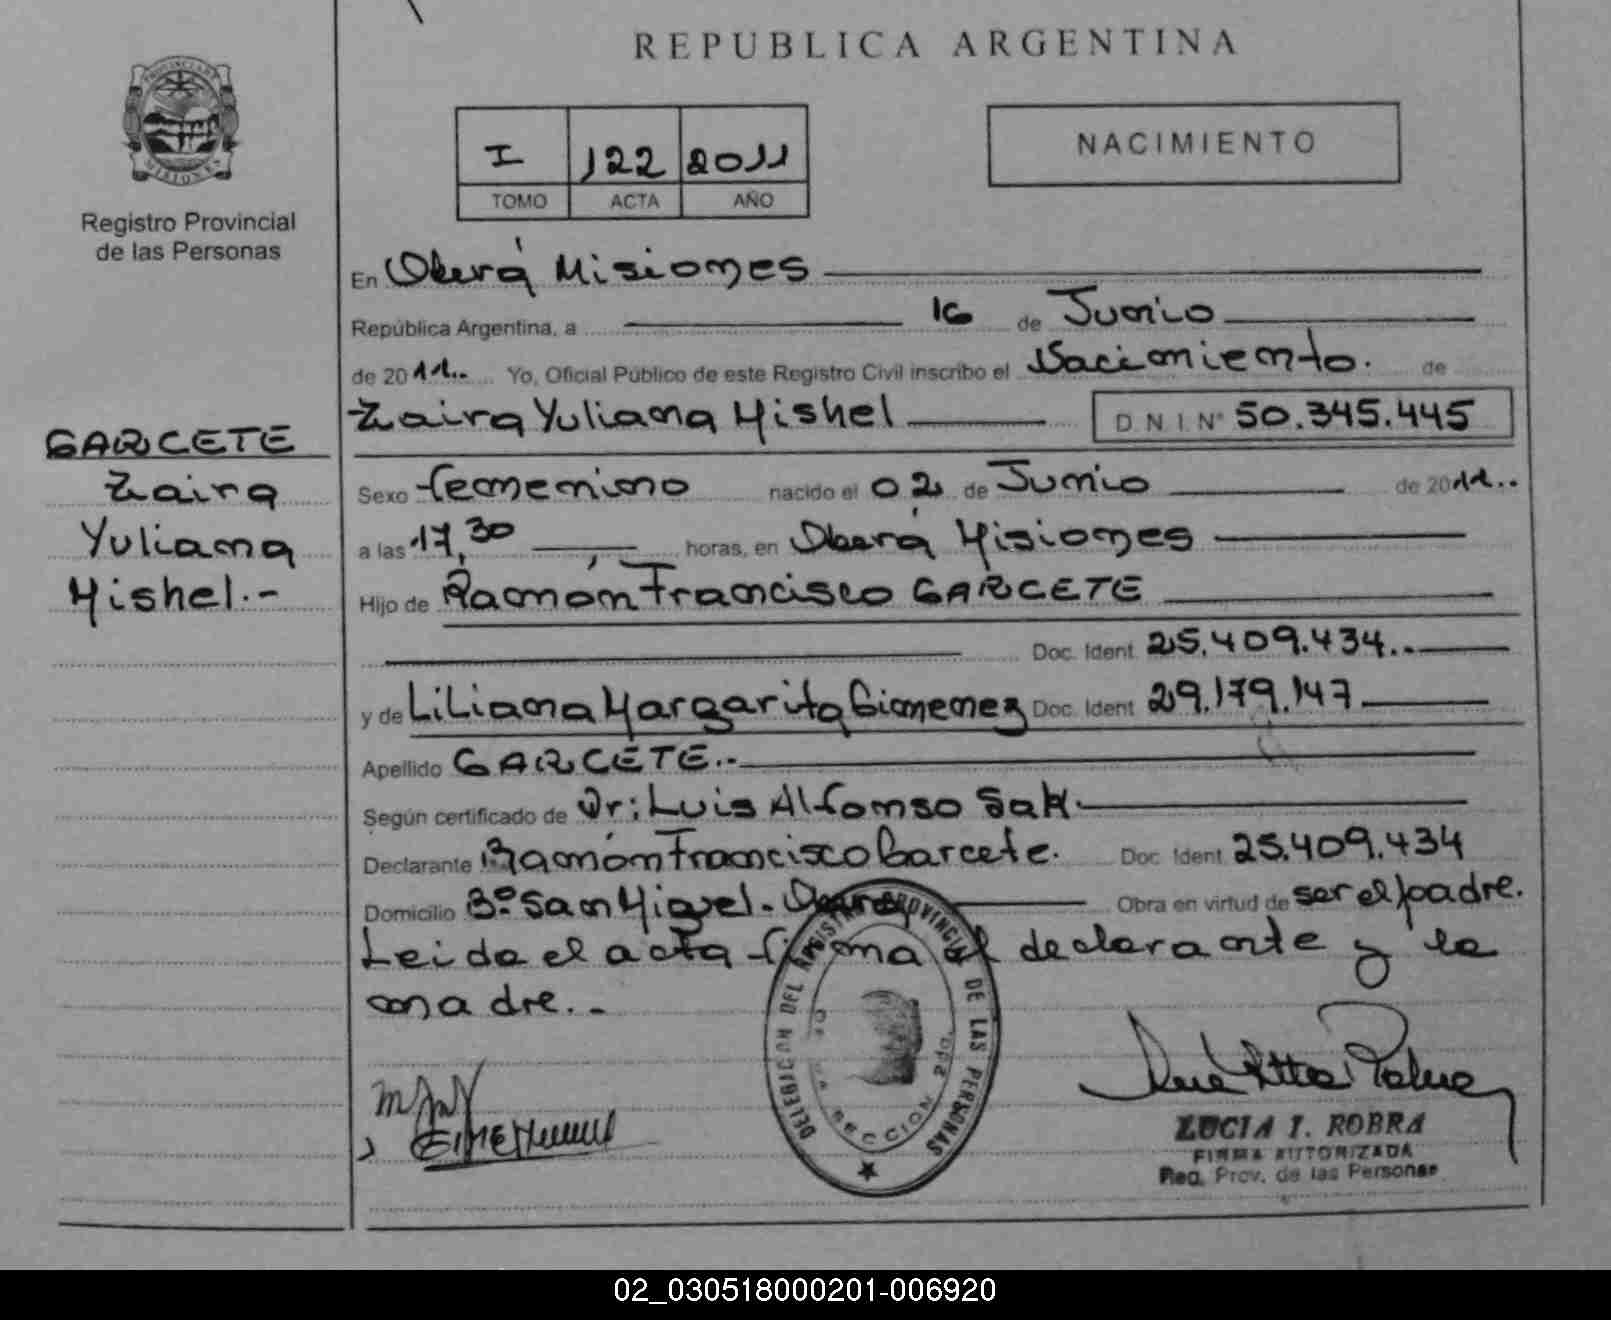 REPUBLICA ARGENTINA
PROVINCIA DE MISIONES
Registro Provincial
de las Personas
I 122 2011
TOMO ACTA AÑO
NACIMIENTO
En Oberá Misiones
República Argentina, a 16 de Junio
de 2011.. Yo, Oficial Público de este Registro Civil inscribo el Nacimiento. de
Zaira Yuliana Mishel D.N.I. Nº 50.345.445
GARCETE
Zaira
Yuliana
Mishel.-
Sexo femenino nacido el 02 de Junio de 2011..
a las 17,30 horas, en Oberá Misiones
Hijo de Ramón Francisco GARCETE
Doc. Ident. 25.409.434..
y de Liliana Margarita Gimenez Doc. Ident. 29.179.147
Apellido GARCETE.-
Según certificado de Dr: Luis Alfonso Sak.
Declarante Ramón Francisco Garcete. Doc. Ident. 25.409.434
Domicilio Bº San Miguel - Oberá Obra en virtud de ser el padre.
Leida el acta firma el declarante y la
madre.-
DELEGACION DEL REGISTRO PROVINCIAL DE LAS PERSONAS
SECCION 2da.
LUCIA I. ROBRA
FIRMA AUTORIZADA
Reg. Prov. de las Personas
02_030518000201-006920